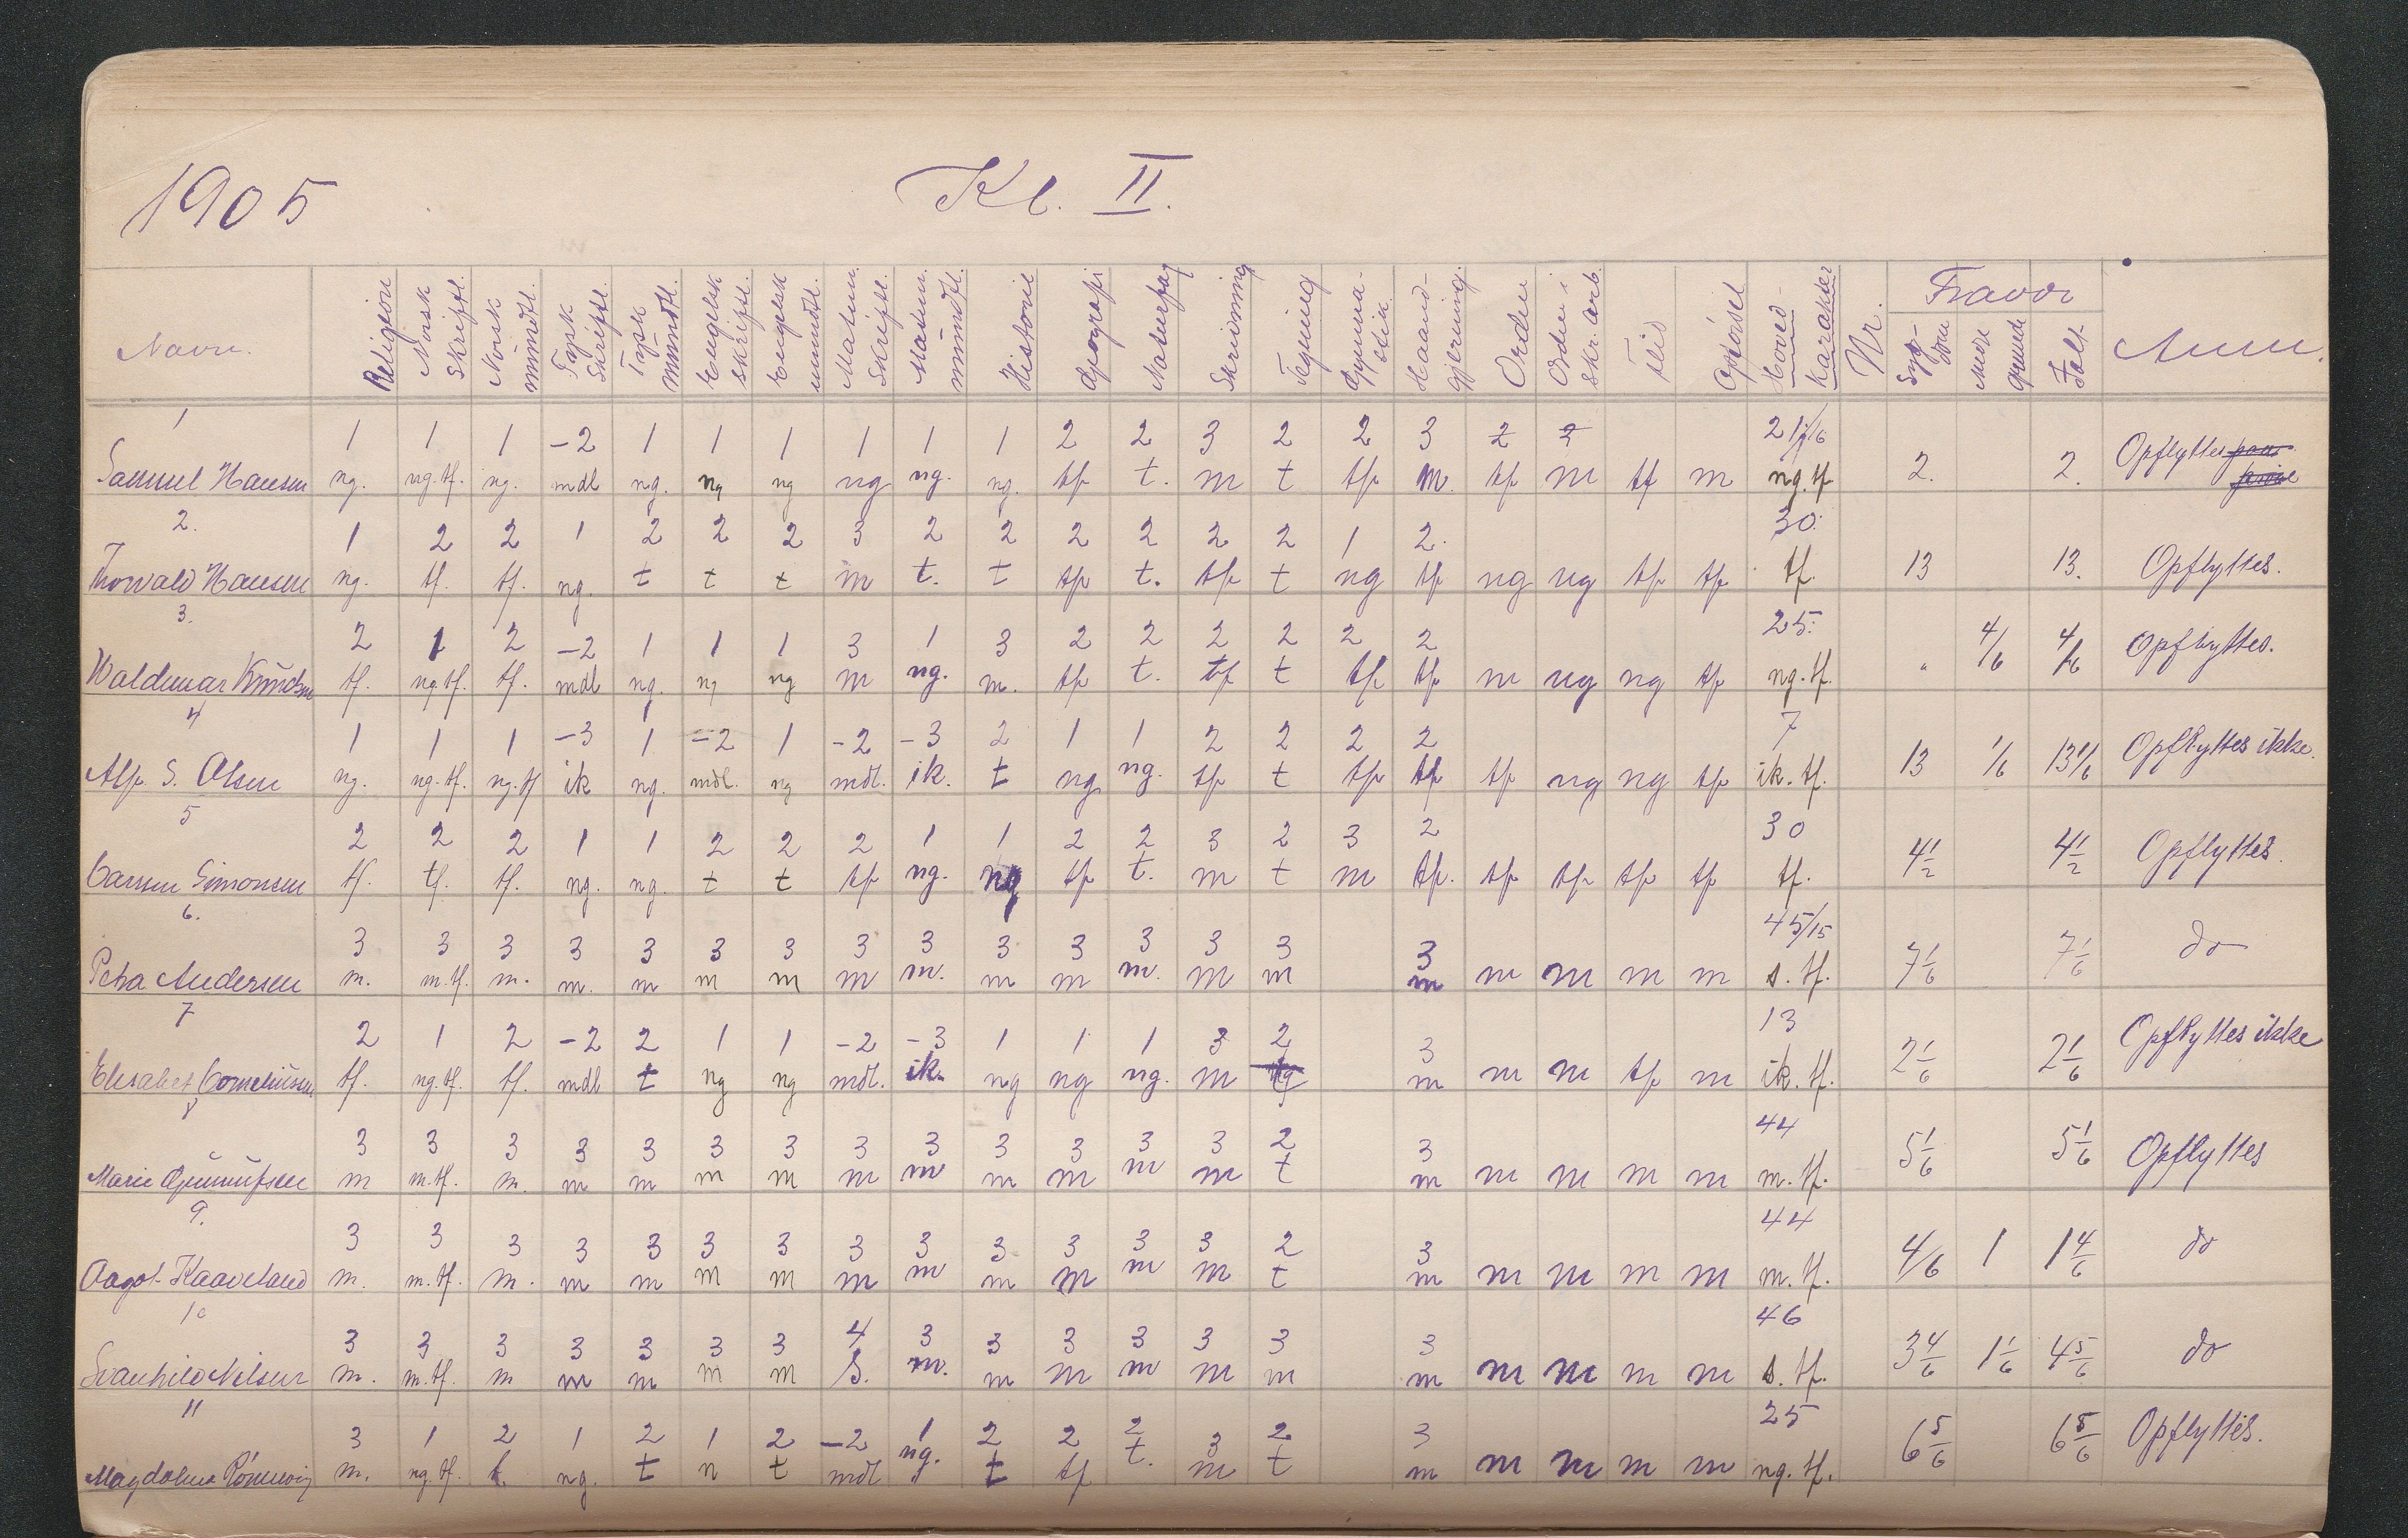 1905 Kl. II.
Navn. Religion Norsk Skriftl. Norsk mündtl. Tysk Skriftl. Tysk mündtl. Engelsk skriftl. Engelsk mundtl. Matem. Skriftl. Matem. mündtl. Historie Geografi Naturfag Skrivning Tegning Gymnastik Haandgjerning. Orden Orden i Skr. arb. Flid Opførsel Hovedkarakter Nr. Fravær Sygdom Andre grunde Ialt Anm.
1 1 1 1 -2 1 1 1 1 1 1 2 2 3 2 2 3 2 3 21/16
Samuel Hansen ng. ng.tf. ng. mdl ng. ng ng ng ng. ng. tf t. m t tf m. tf m tf m ng.tf 2. 2. Opflyttes
2. 1 2 2 1 2 2 2 3 2 2 2 2 2 2 1 2. 30.
Thorvald Hansen ng. tf. tf. ng. t t t m t. t tf t. tf t ng tf ng ng tf tf tf. 13 13. Opflyttes.
3. 2 1 2 -2 1 1 1 3 1 3 2 2 2 2 2 2 25.
Waldemar Knüdsen tf. ng.tf. tf. mdl ng. ng ng m ng. m. tf t. tf t tf tf m ng ng tf ng.tf. " 4/6 4/6 Opflyttes.
4 1 1 1 -3 1 -2 1 -2 -3 2 1 1 2 2 2 2 7
Alf S. Olsen ng. ng.tf. ng.tf ik ng. mdl. ng mdl. ik. t ng ng. tf t tf tf tf ng ng tf ik.tf. 13 1/6 13 1/6 Opflyttes ikke.
5 2 2 2 1 1 2 2 2 1 1 2 2 3 2 3 2 30
Simonsen tf. tf. tf. ng. ng. t t tf ng. ng tf t. m t m tf. tf tf tf tf tf. 4 1/2 4 1/2 Opflyttes.
6. 3 3 3 3 3 3 3 3 3 3 3 3 3 3 3 45/15
Petra Andersen m. m.tf. m. m. m m m m m. m m m. m m m m m m m s.tf. 7 1/6 7 1/6 do
7 2 1 2 -2 2 1 1 -2 -3 1 1 1 3 2 3 13
Elisabet Corneliüsen tf. ng.tf. tf. mdl t ng ng mdl. ik. ng ng ng. m t m m m tf m ik.tf. 2 1/6 2 1/6 Opflyttes ikke
8 3 3 3 3 3 3 3 3 3 3 3 3 3 2 3 44
Marie m m.tf. m. m m m m m m m m m m t m m m m m m.tf. 5 1/6 5 1/6 Opflyttes
9. 3 3 3 3 3 3 3 3 3 3 3 3 3 2 3 44
Aagot Kaaveland m. m.tf. m. m m m m m m m m m m t m m m m m m.tf. 4/6 1 1 4/6 do
10 3 3 3 3 3 3 3 4 3 3 3 3 3 3 3 46
Svanhild Nilsen m. m.tf. m m m m m S. m. m m m m m m m m m m s.tf. 3 4/6 1 1/6 4 5/6 do
11 3 1 2 1 2 1 2 -2 1 2 2 2 3 2 3 25
Magdalene m. ng.tf. t. ng. t n t mdl ng. t tf t. m t m m m m m ng.tf. 6 5/6 6 5/6 Opflyttes.